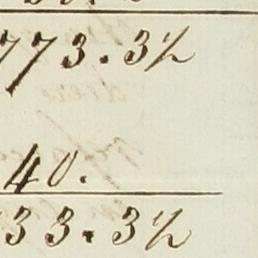 773.3½
40.
33.3½